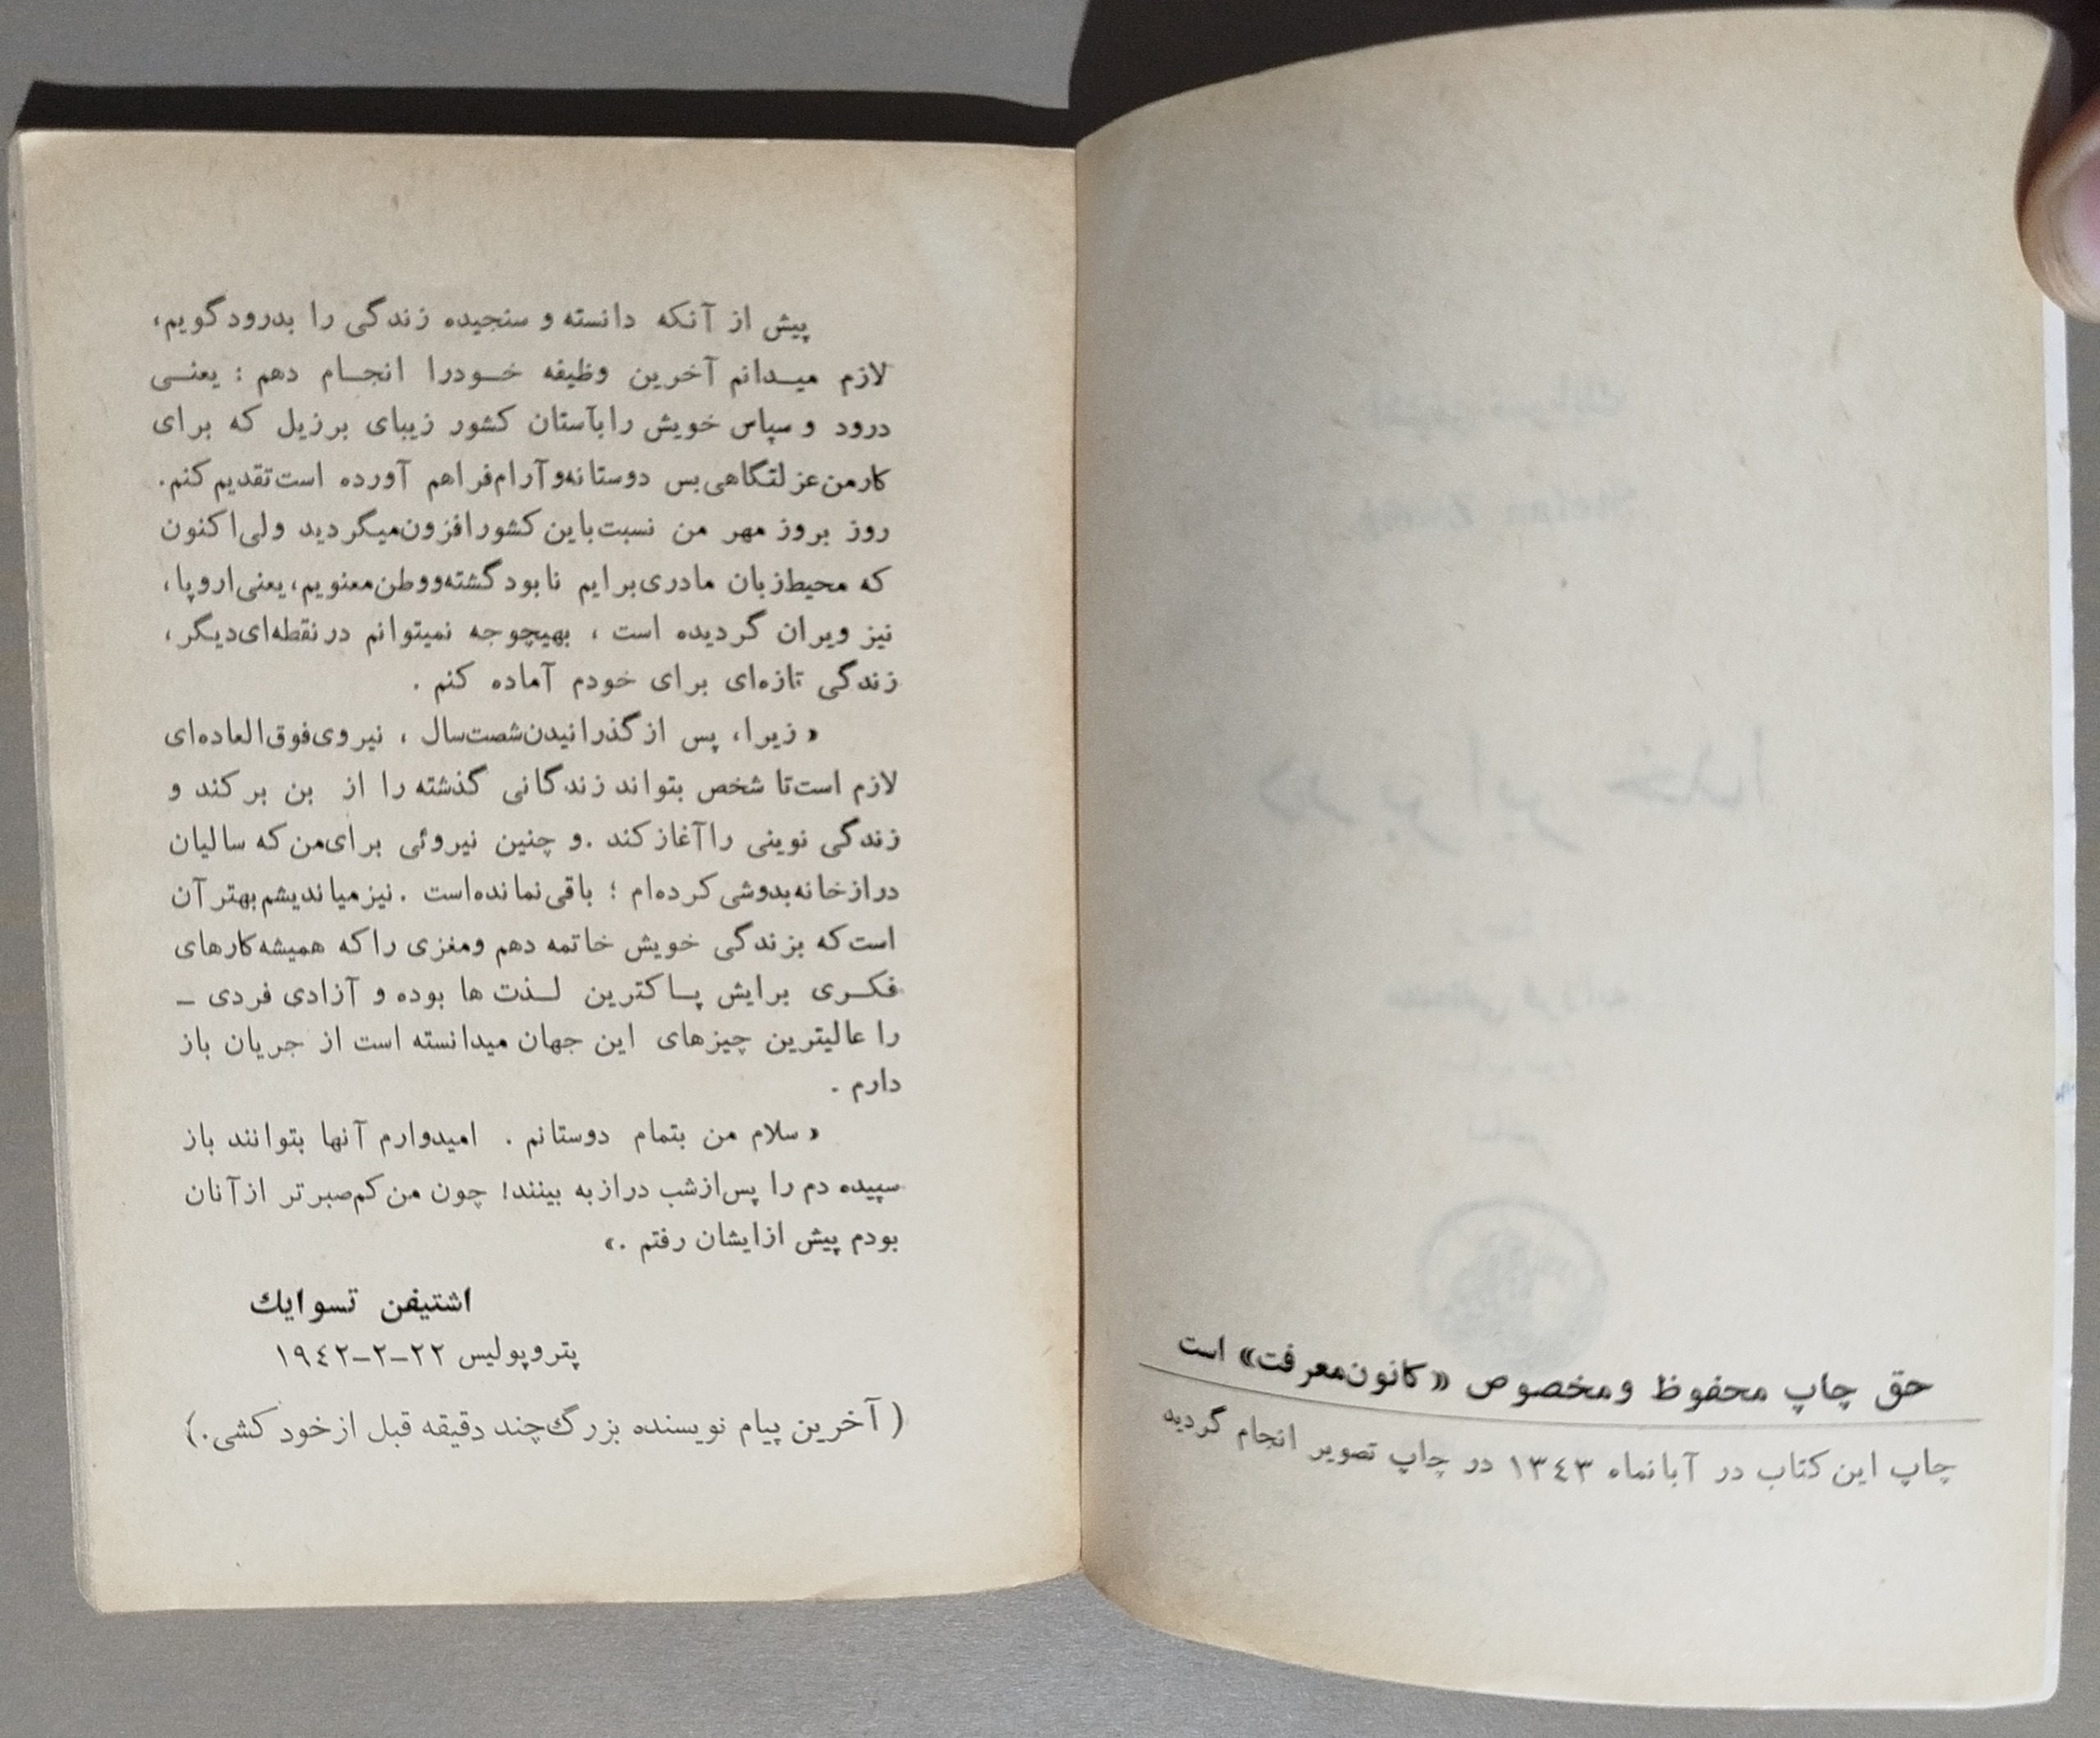 حق چاپ محفوظ ومخصوص «کانون‌معرفت» است
چاپ این کتاب در آبانماه ۱۳٤۳ در چاپ تصویر انجام گردید
پیش از آنکه دانسته و سنجیده زندگی را بدرود گویم،
لازم میـدانم آخرین وظیفه خـودرا انجـام دهم : یعنـی
درود و سپاس خویش را بآستان کشور زیبای برزیل که برای
کارمن عزلتگاهی بس دوستانه و آرام فراهم آورده است تقدیم کنم.
روز بروز مهر من نسبت باین کشور افزون میگردید ولی اکنون
که محیط زبان مادری برایم نابود گشته و وطن معنویم، یعنی اروپا،
نیز ویران گردیده است ، بهیچوجه نمیتوانم در نقطه‌ای دیگر،
زندگی تازه‌ای برای خودم آماده کنم .
« زیرا، پس از گذرانیدن شصت سال ، نیروی فوق العاده‌ای
لازم است تا شخص بتواند زندگانی گذشته را از بن برکند و
زندگی نوینی را آغاز کند .و چنین نیروئی برای من که سالیان
دراز خانه بدوشی کرده‌ام ؛ باقی نمانده است . نیز میاندیشم بهتر آن
است که بزندگی خویش خاتمه دهم ومغزی را که همیشه کارهای
فکـری برایش پـاکترین لـذت ها بوده و آزادی فردی ـ
را عالیترین چیزهای این جهان میدانسته است از جریان باز
دارم .
« سلام من بتمام دوستانم . امیدوارم آنها بتوانند باز
سپیده دم را پس از شب دراز به بینند! چون من کم صبر تر از آنان
بودم پیش از ایشان رفتم .»
اشتیفن تسوایك
پتروپولیس ۲۲-۲-۱۹٤۲
( آخرین پیام نویسنده بزرگ چند دقیقه قبل از خود کشی.)